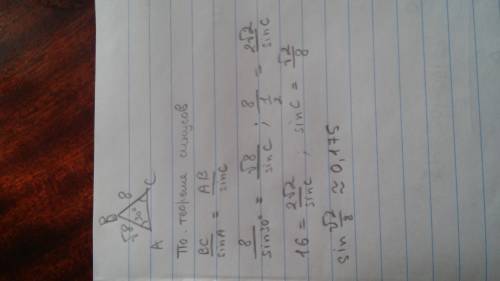 B
√8 8
30°
A C
По теореме синусов
BC/sinA = AB/sinC
8/sin30° = √8/sinC ; 8/(1/2) = 2√2/sinC
16 = 2√2/sinC , sinC = √2/8
sin √2/8 ≈ 0,175